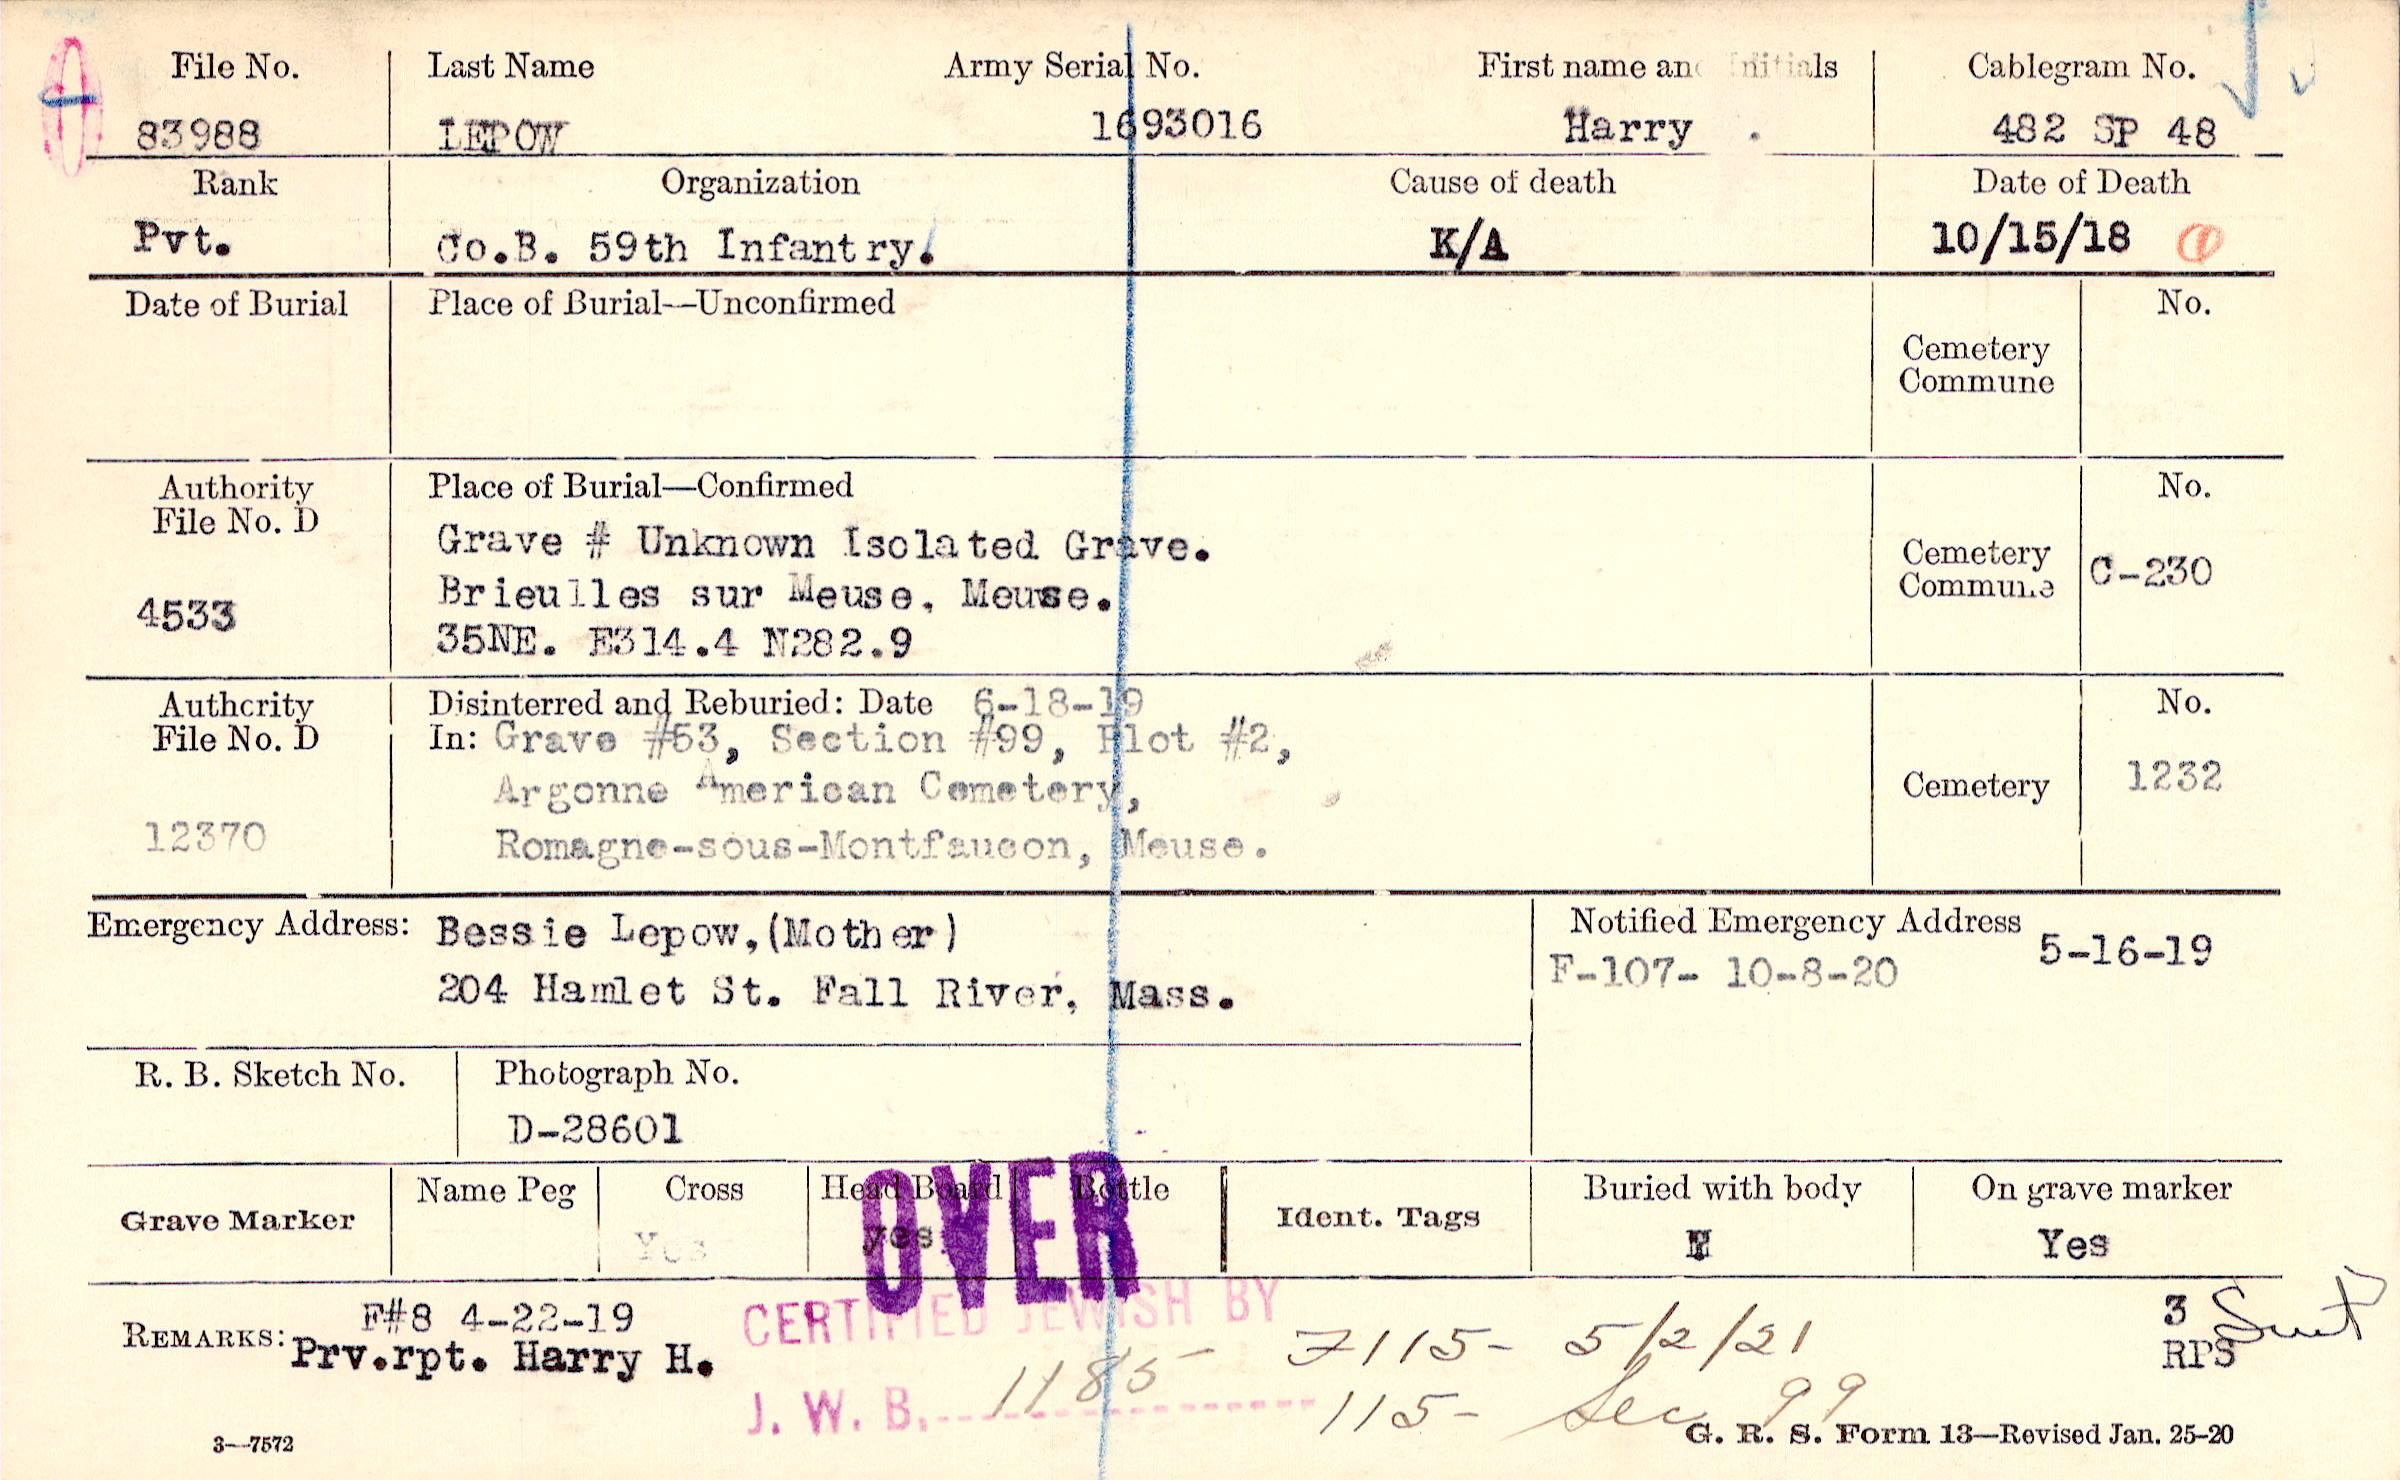 File No. Last Name Army Serial No. First name and Initials Cablegram No.
83988 LEPOW 1693016 Harry . 482 SP 48
Rank Organization Cause of death Date of Death
Pvt. Co.B. 59th Infantry. K/A 10/15/18
Date of Burial Place of Burial—Unconfirmed No.
Cemetery
Commune
Authority Place of Burial—Confirmed No.
File No. D
Grave # Unknown Isolated Grave.
Cemetery
Commune C-230
Brieulles sur Meuse, Meuse.
4533
35NE. E314.4 N282.9
Authority Disinterred and Reburied: Date 6-18-19 No.
File No. D In: Grave #53, Section #99, Plot #2,
Argonne American Cemetery, Cemetery 1232
12370 Romagne-sous-Montfaucon, Meuse.
Emergency Address: Bessie Lepow,(Mother) Notified Emergency Address 5-16-19
204 Hamlet St. Fall River, Mass. F-107- 10-8-20
R. B. Sketch No. Photograph No.
D-28601
OVER
Grave Marker Name Peg Cross Head Board Bottle Ident. Tags Buried with body On grave marker
Yes yes Yes
REMARKS: F#8 4-22-19
Prv.rpt. Harry H.
CERTIFIED JEWISH BY
J. W. B. 1185
7115- 5/2/21
115- Sec 99
3
RPS
3—7572 G. R. S. Form 13—Revised Jan. 25-20